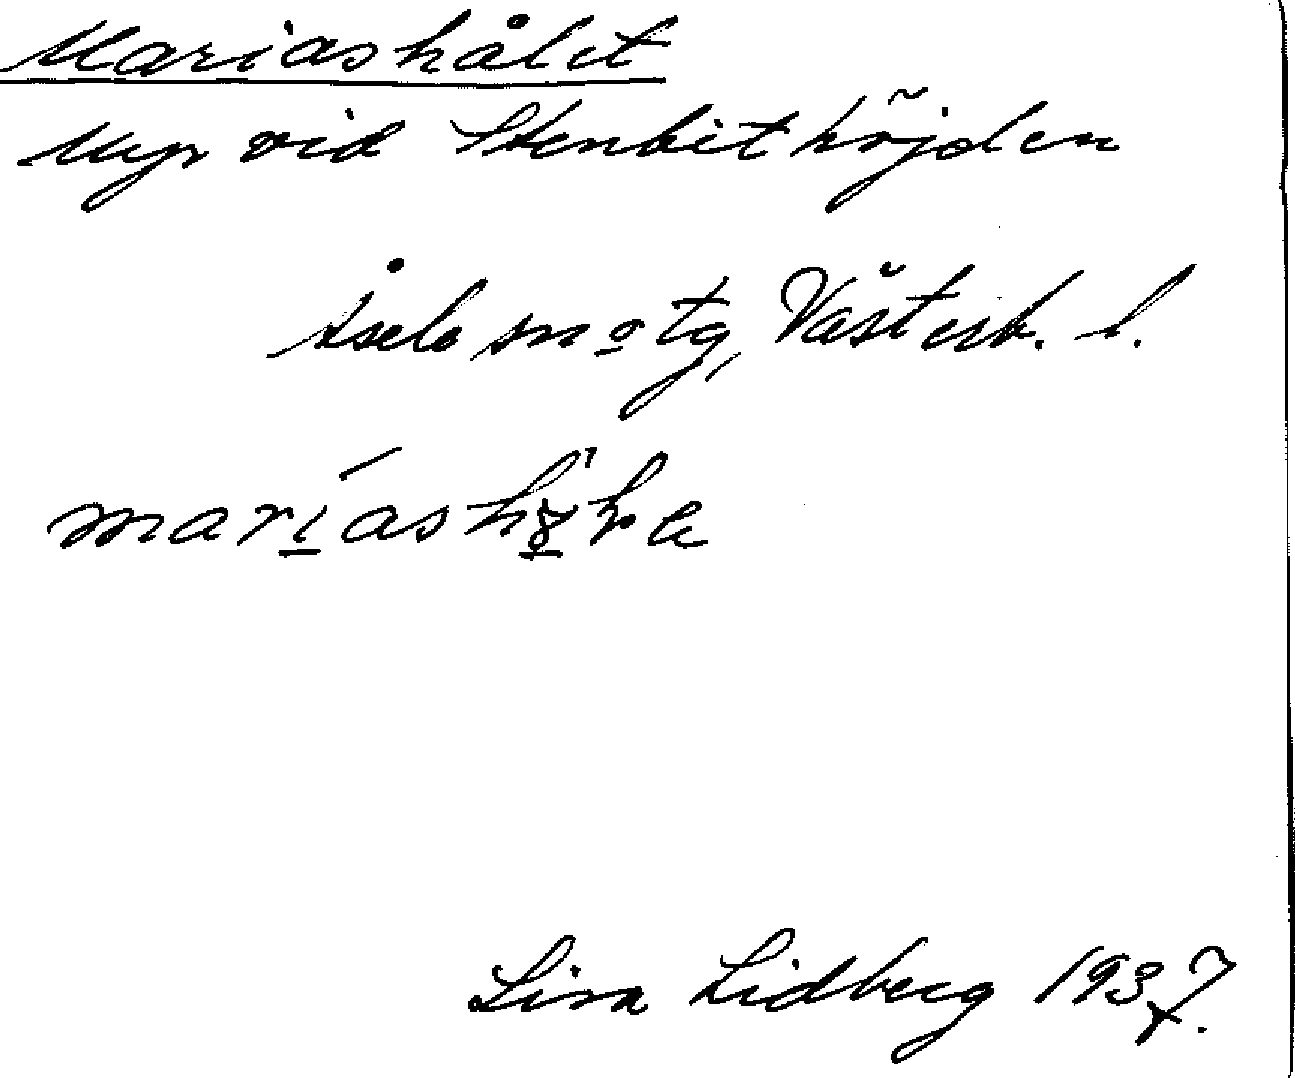 Mariashålet
Myr vid Stenbithöjden
Åsele sn o tg, Västerb. l.
Lisa Lidberg 1937.